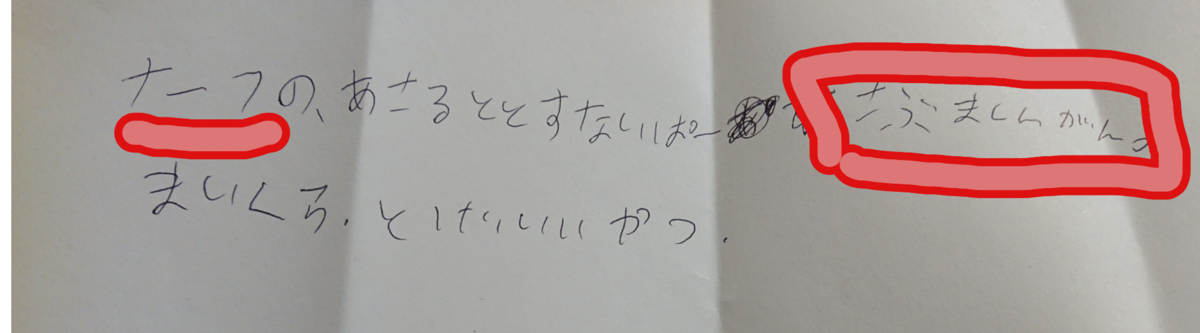 ナーフの、あさるととすないぱー さぶましんがん
まいくら.とけいいいかつ.